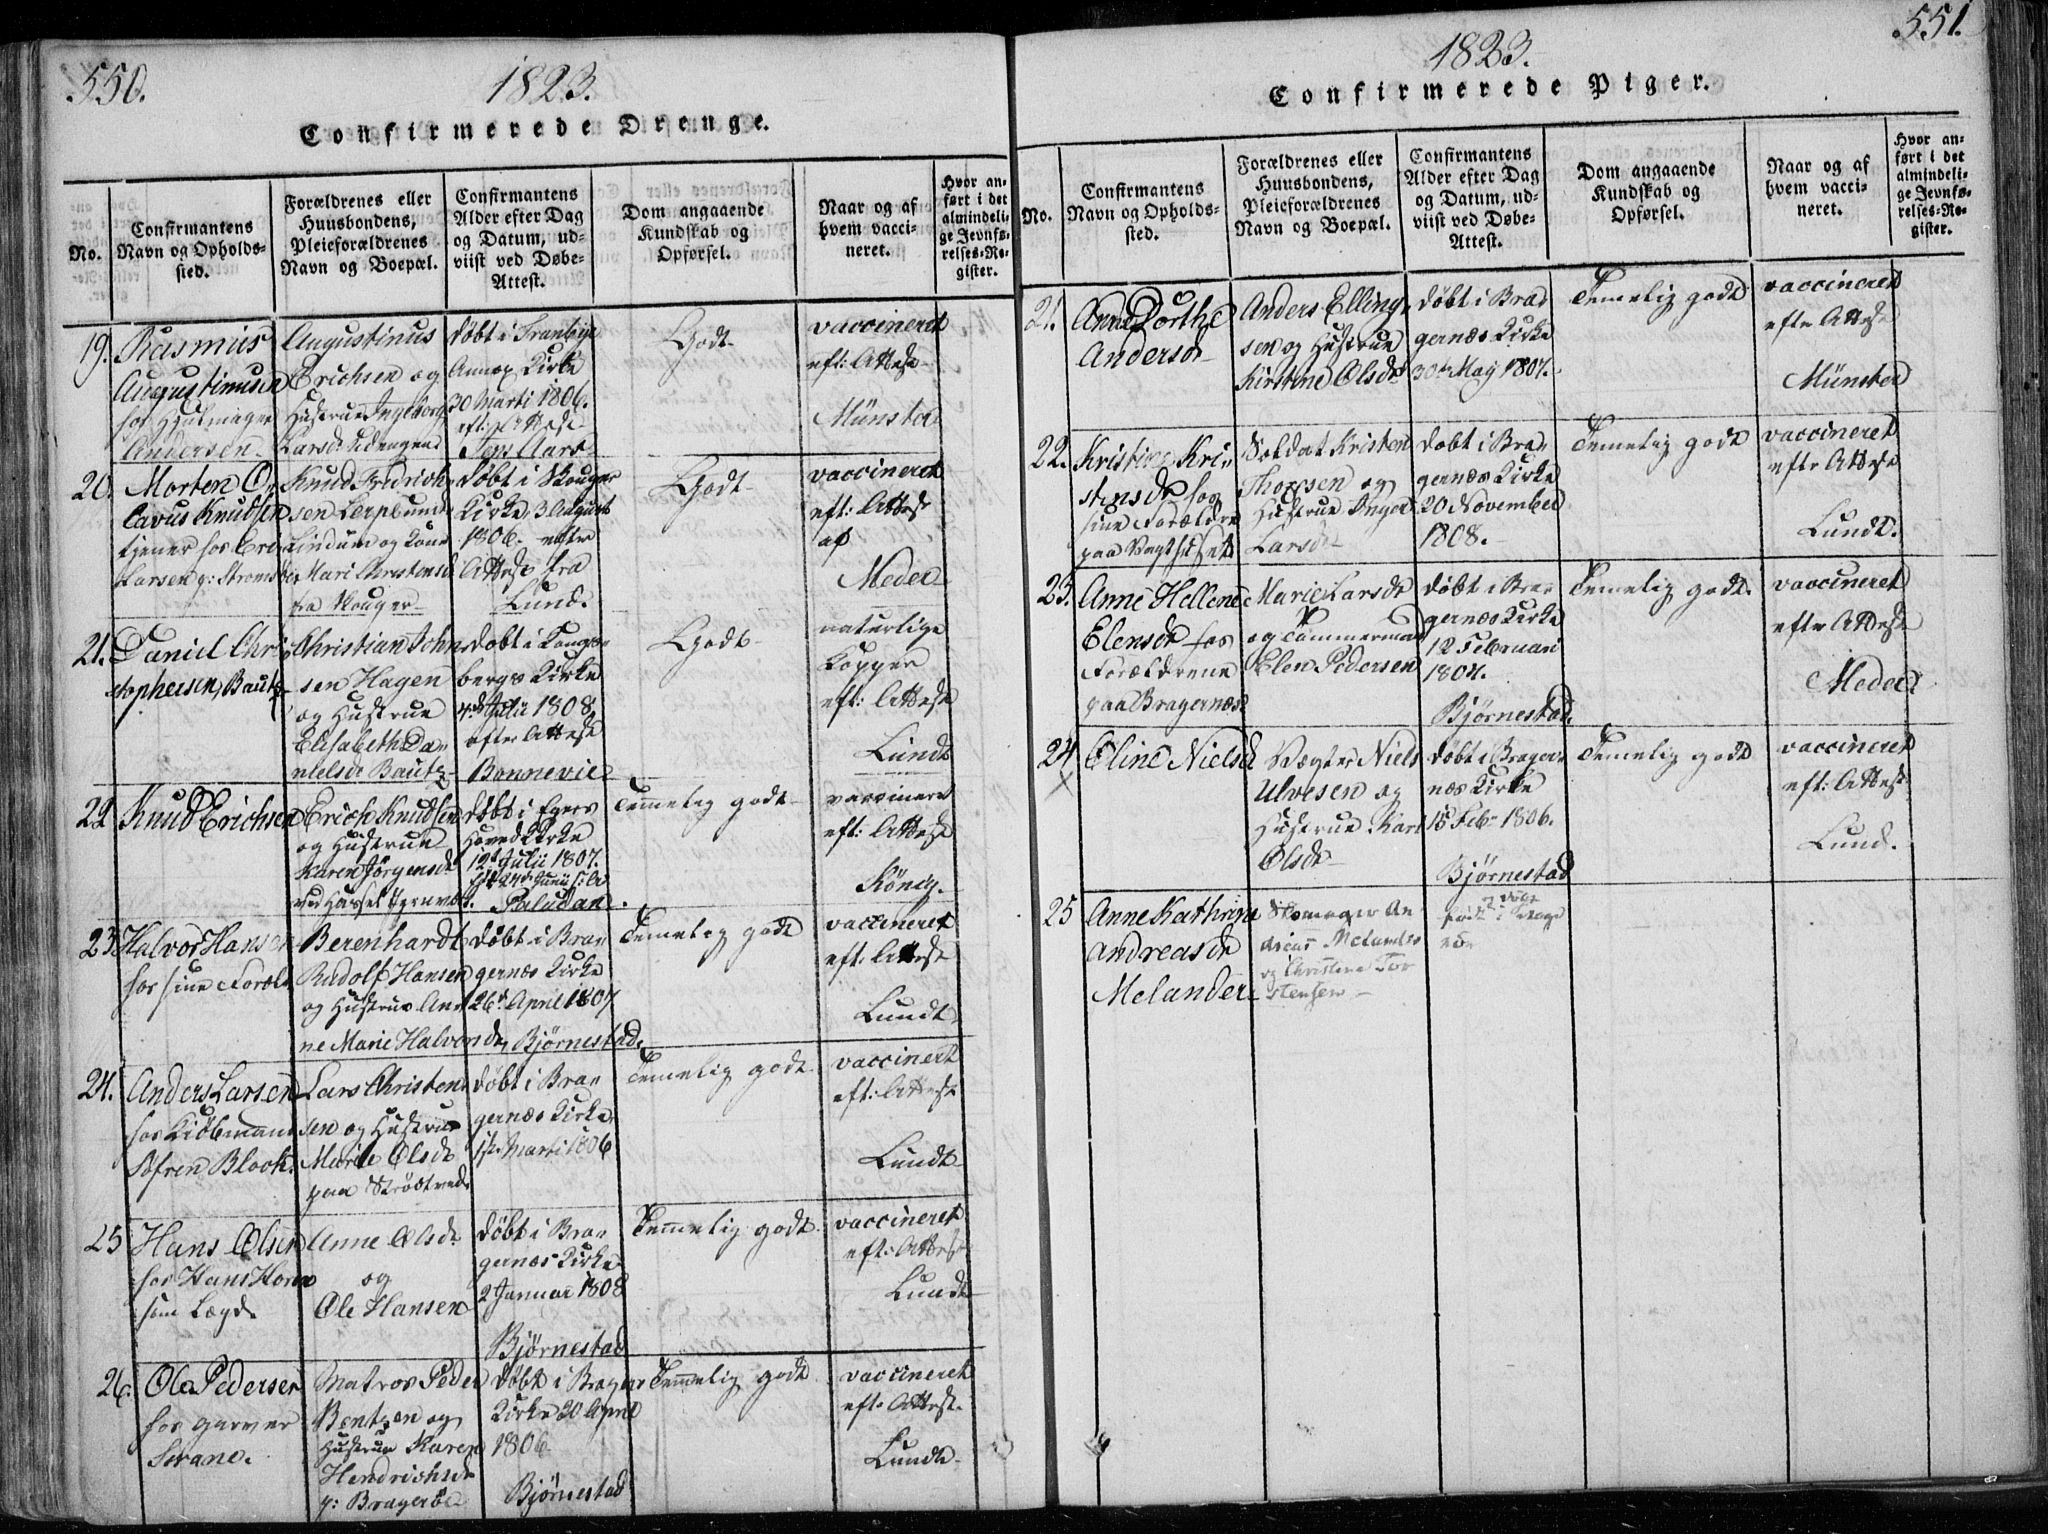 550.
1823.
Confirmerede Drenge.
No.
Confirmantens Navn og Opholds-sted.
Forældrenes eller Huusbondens, Pleieforældrenes Navn og Boepæl.
Confirmantens Alder efter Dag og Datum, ud-viist ved Døbe-Attest.
Dom angaaende Kundskab og Opførsel.
Naar og af hvem vacci-neret.
Hvor an-ført i det almindeli-ge Jevnfø-relses-Re-gister.
19.
Rasmus
Augustinusen
hos Hjulmager
Andersen
Augustinus
Erichsen og
Hustrue Ingeborg
Larsdr
døbt i Tranbye
Annex Kirke
30 Marti 1806.
eft: Attest
Godt
vaccineret
eft: Attest
Münster
20.
Morten O-
lavus Knudsen
tjener hos
Larsen
Knud Fredrich-
sen
Lindum og Kone
Mari Christensd
fra Skouger
døbt i Skouger
Kirke 3 August
1806. efter
Attest fra
Lund.
Godt
vaccineret
eft: Attest
af
Meder
21.
Daniel Chri-
stophersen, Bautz
Christian John-
sen Hagen
og Hustrue
Elisabeth Da-
nielsdr Bautz
døbt i Kongs-
bergs Kirke
Julii 1808.
efter Attest
Bonnevie
Godt
naturlige
Kopper
eft: Attest
Lundt
22
Knud Erichsen
Erich Knudsen
og Hustrue
Karen Jörgensdr
ved Hassel Jernværk
døbt i Egers
Hoved Kirke
12 Julii 1807.
Paludan.
Temelig godt
vaccineret
eft: Attest
König.
23
Halvor Hansen
hos sine Foreld
Berenhardt
Rudolf Hansen
og Hustrue An-
ne Marie Halvorsdr
døbt i Bra-
gernæs Kirke
26 April 1807
Bjørnestad.
Temelig godt
vaccineret
eft: Attest
Lundt
24.
Anders Larsen
hos Kiöbmand
Søfren Blook.
Lars Christen-
sen og Hustrue
Marie Olsdr
paa Strødtvedt
døbt i Bra-
gernæs Kirke
Marti 1806
Temelig godt
vaccinert
eft: Attest
Lundt
25
Hans Olsen
hos Hans Horn
sin Lægd
Anne Olsdr
og
Ole Hansen
døbt i Bra-
gernæs Kirke
2 Januar 1808
Bjørnestad
Temmelig godt
vaccineret
eft: Attest
Lundt
26.
Ole Pedersen
hos garver
Svane.
Matros Peder
Bentzen og
Hustrue Karen
Hendrichsdr
p: Bragerøe
døbt i Bragers
Kirke 20 April
1806
Bjørnestad
Temmelig godt
vaccineret
eft. Attest.
Lundt
551.
1823.
Confirmerede Piger.
No.
Confirmantens Navn og Opholds-sted.
Forældrenes eller Huusbondens, Pleieforældrenes Navn og Boepæl.
Confirmantens Alder efter Dag og Datum, ud-viist ved Døbe-Attest.
Dom angaaende Kundskab og Opførsel.
Naar og af hvem vacci-neret.
Hvor an-ført i det almindeli-ge Jevnfø-relses-Re-gister.
21.
Anne Dorthe
Andersdr
Anders Elling-
sen og Hustrue
Kirstine Olsdr
døbt i Bra-
gernæs Kirke
30 May 1807.
Temelig godt
vaccineret
eftr Attest
Münster
22.
Kristine Kri-
stensdr hos
sine Forældre
paa Vagthuset
Soldat Kristen
Thoresen og
Hustrue Inger
Larsdr
døbt i Bra-
gernæs Kirke
20 November
1808.
Temelig godt
vaccineret
eftr Attest
Lundt.
23.
Anne Hellene
Elensdr hos
Forældrene
paa Bragernæs
Marie Larsdr
og Tømmermand
Elen Pedersen
døbt i Bra-
gernæs Kirke
12 Februari
1807.
Bjørnestad.
Temelig godt.
vaccineret
eftr Attest
Meder
24
X
Oline Nielsd
Vægter Niels
Ulvesen og
Hustrue Kari
Olsdr
døbt i Brager-
næs Kirke
15 Feb 1806.
Bjørnestad
Temelig godt
vaccineret
eft: Attest
Lund.
25
Anne Kathrine
Andreasdr
Melander
Skomager An-
dreas Melander
og Christine Tor
stensen
født i